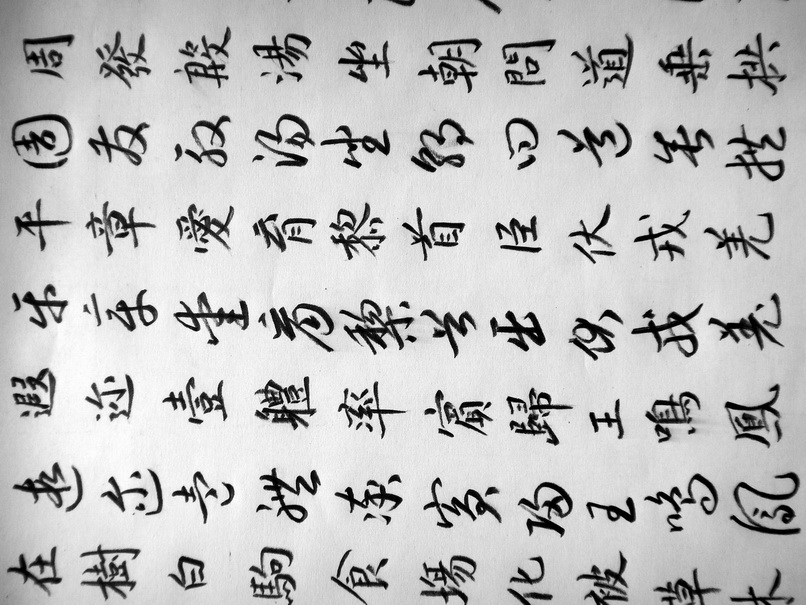 周發殷湯坐朝問道垂拱
周發殷湯坐朝問道垂拱
平章愛育黎首臣伏戎羌
平章愛育黎首臣伏戎羌
遐迩壹體率賓歸王鳴鳳
遐迩壹體率賓歸王鳴鳳
在樹白駒食場化被草木